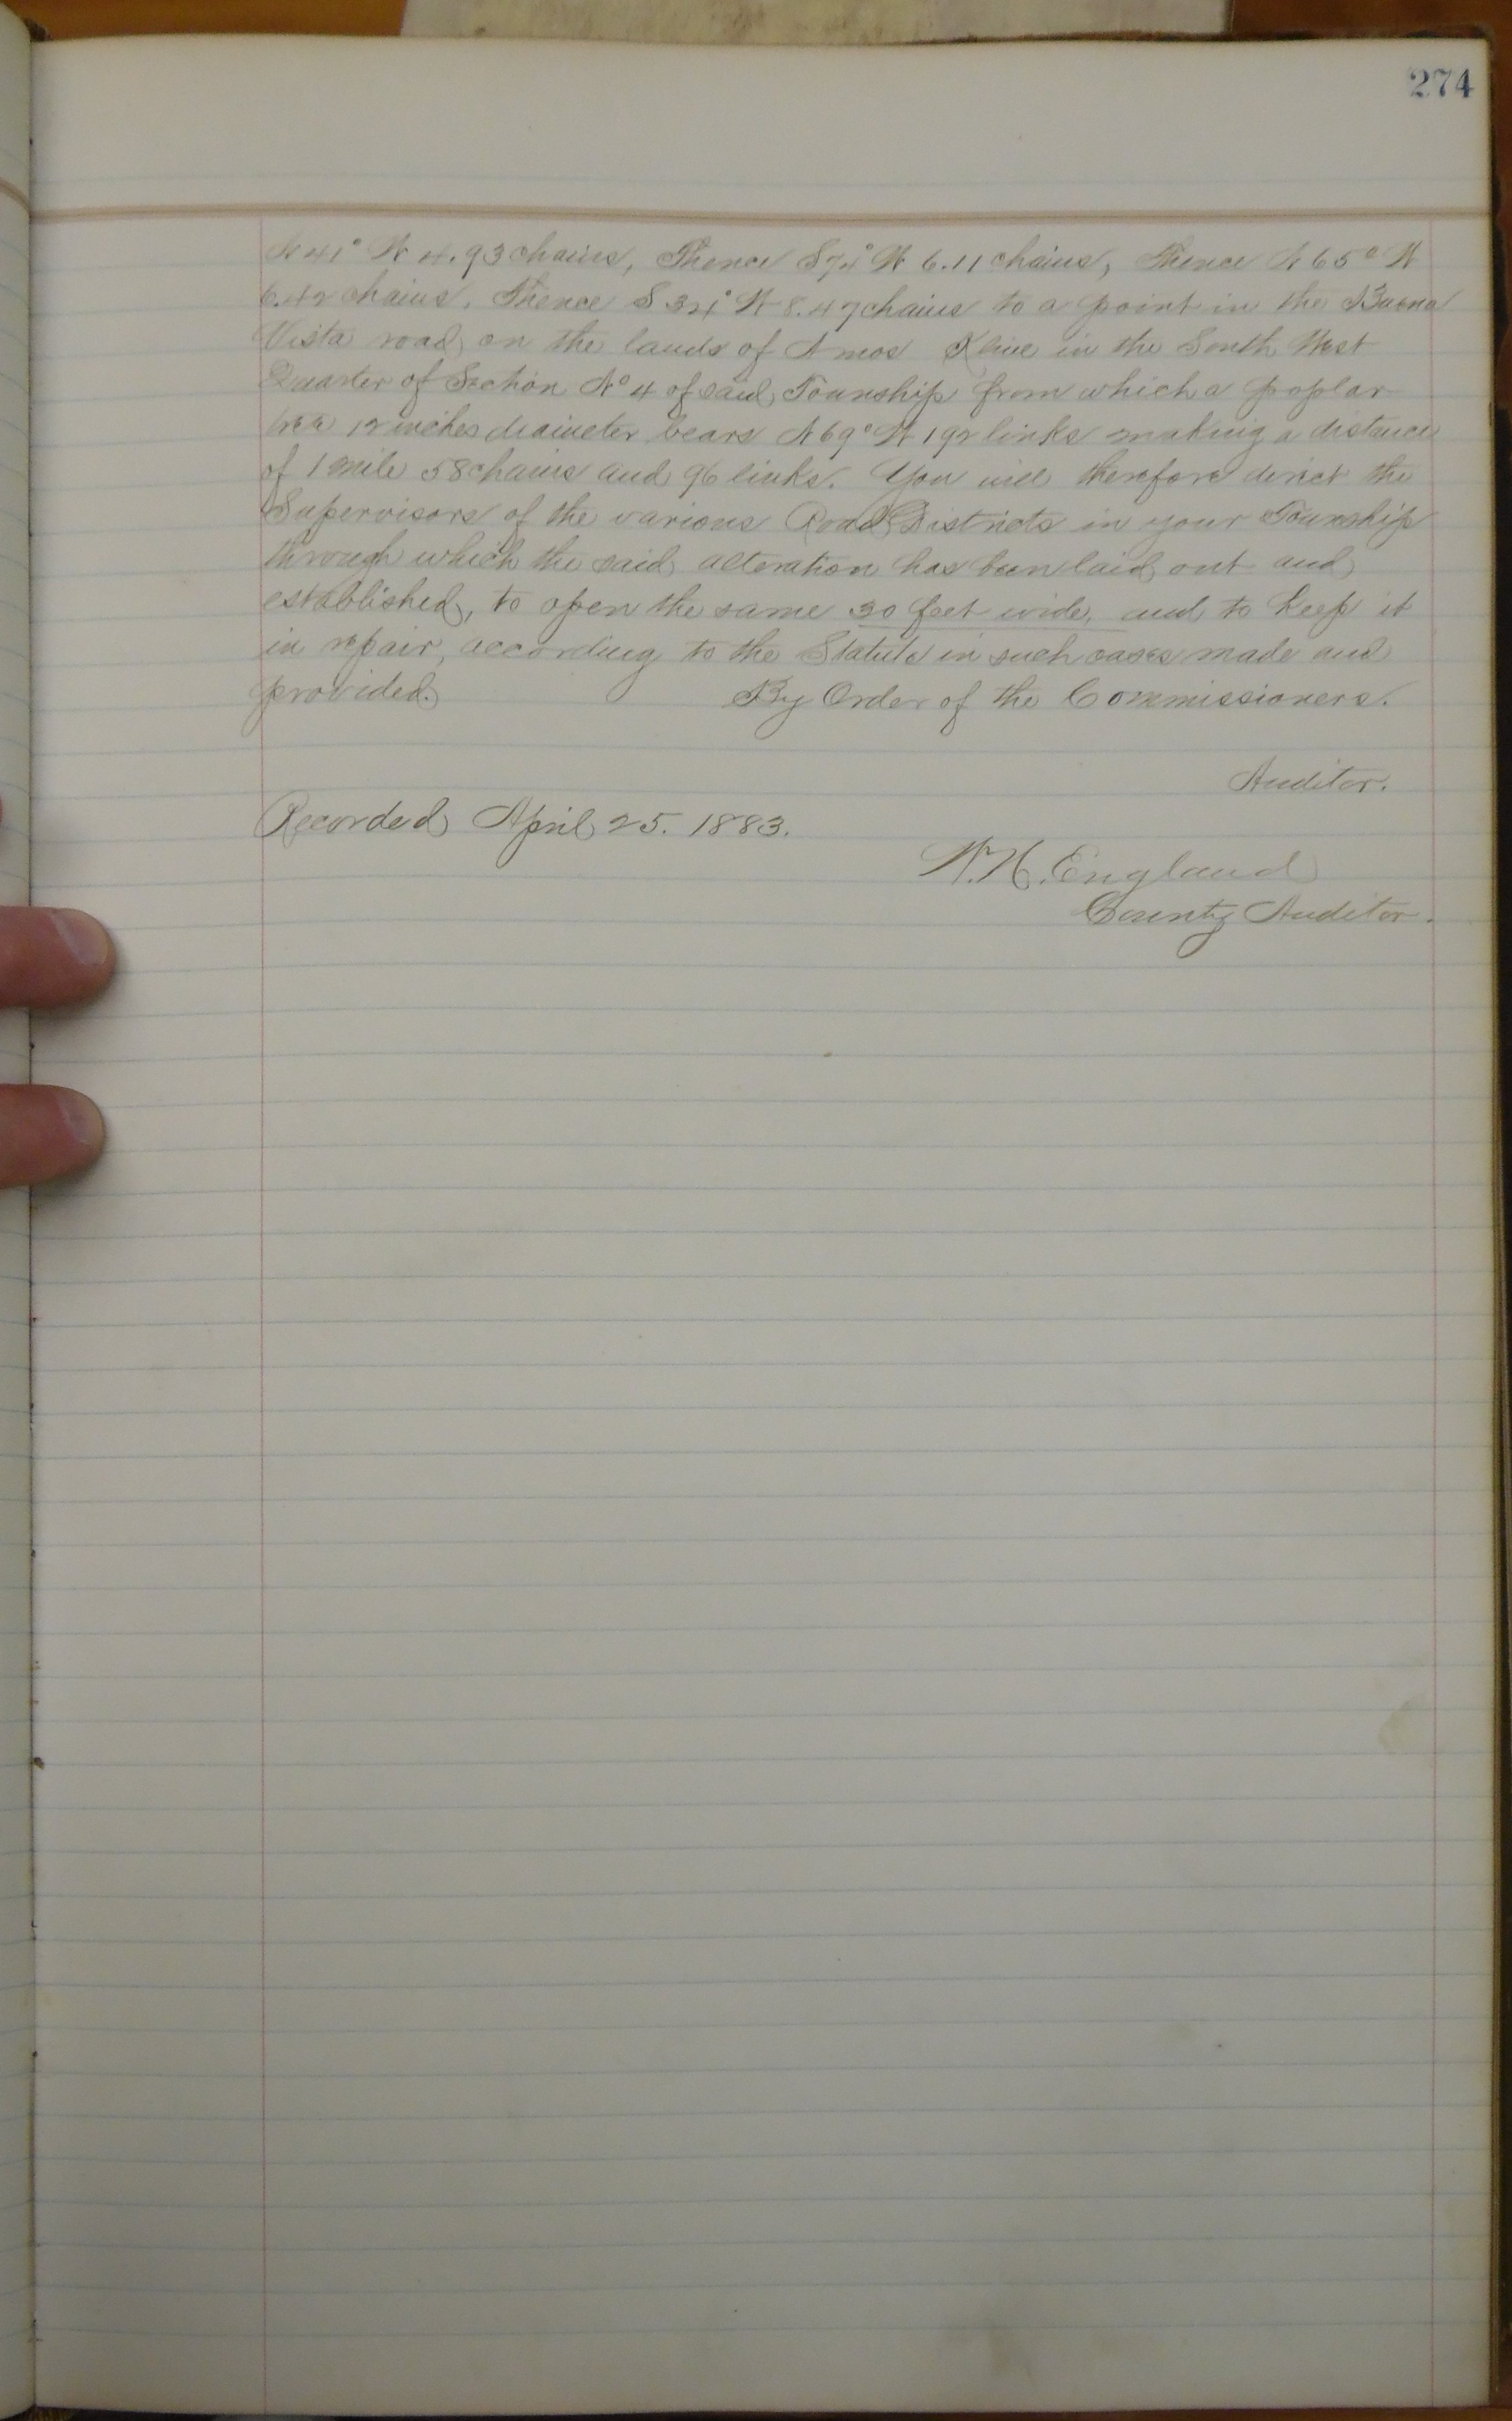 274
N 41° W 4.93 chains, Thence S 74° W 6.11 chains, Thence N 65° W
6.42 chains. Thence S 34° W 8.47 chains to a point in the Buena
Vista road, on the lands of Amos Kline in the South West
Quarter of Section No 4 of said Township from which a poplar
tree 12 inches diameter bears N 69° W 192 links making a distance
of 1 mile 58 chains and 96 links. You will therefore direct the
Supervisors of the various Road Districts in your Township
through which the said alteration has been laid out and
established, to open the same 30 feet wide, and to keep it
in repair, according to the Statute in such cases made and
provided. By Order of the Commissioners.
Auditor.
Recorded April 25. 1883.
W. H. England
County Auditor.